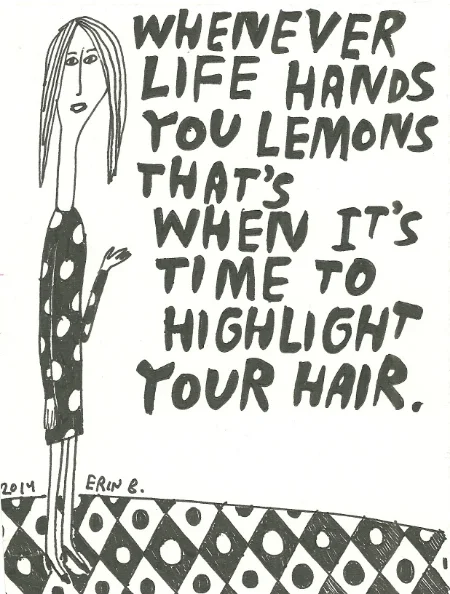 WHENEVER
LIFE HANDS
YOU LEMONS
THAT'S
WHEN IT'S
TIME TO
HIGHLIGHT
YOUR HAIR.
2014 ERIN B.